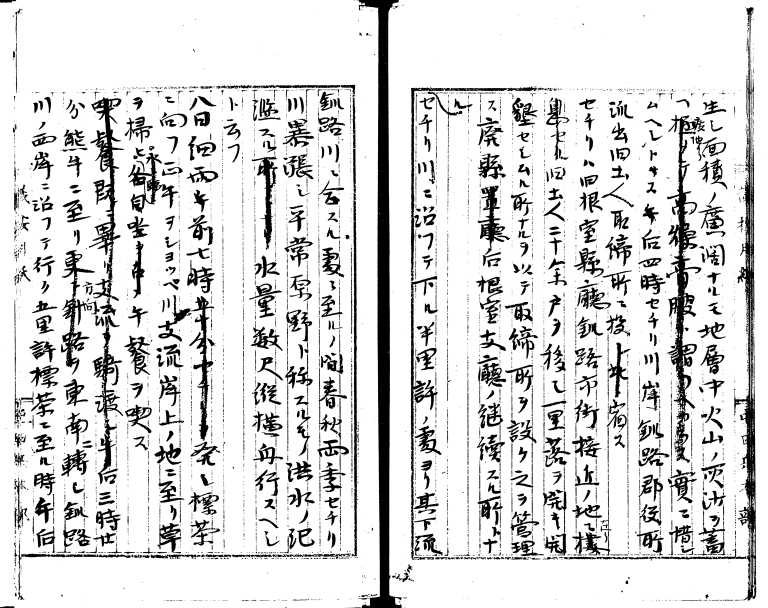 生シ面積ノ廣濶ナルモ地層中火山ノ灰沙ヲ蓄
極メテ高燥膏腴ト謂フ實ニ惜シ
ムヘシトス午后四時セチリ川岸釧路郡役所
派出旧土人取締所ニ投シ宿ス
セチリハ旧根室縣廳釧路市街接近ノ地ニ棲
息セル旧土人二十余戸ヲ移シ一里落ヲ開キ開
墾セシムル所ナルヲ以テ取締所ヲ設ケ之ヲ管理
ス廃縣置廳后根室支廳ノ継続スル所トナ
ル
セチリ川ニ沿フテ下ル半里許ノ處ヨリ其下流
釧路川ニ合スル處ニ至ルノ間春秋両季セチリ
川暴漲シ平常原野ト称スルモノ洪水ノ氾
濫スル所トナリ水量数尺縦横舟行スヘシ
ト云フ
八日細雨午前七時五十分セチリヲ発シ標茶
ニ向フ正午ヲシヨツペ川支流岸上ノ地ニ至リ草
ヲ掃ヒ各自坐シ午餐ヲ喫ス
喫餐既ニ畢リ支流ヲ騎渡シ午后三時廿
分熊牛ニ至リ東方釧路ノ東南ニ轉シ釧路
方向
川ノ西岸ニ沿フテ行ク五里許標茶ニ至ル時午后